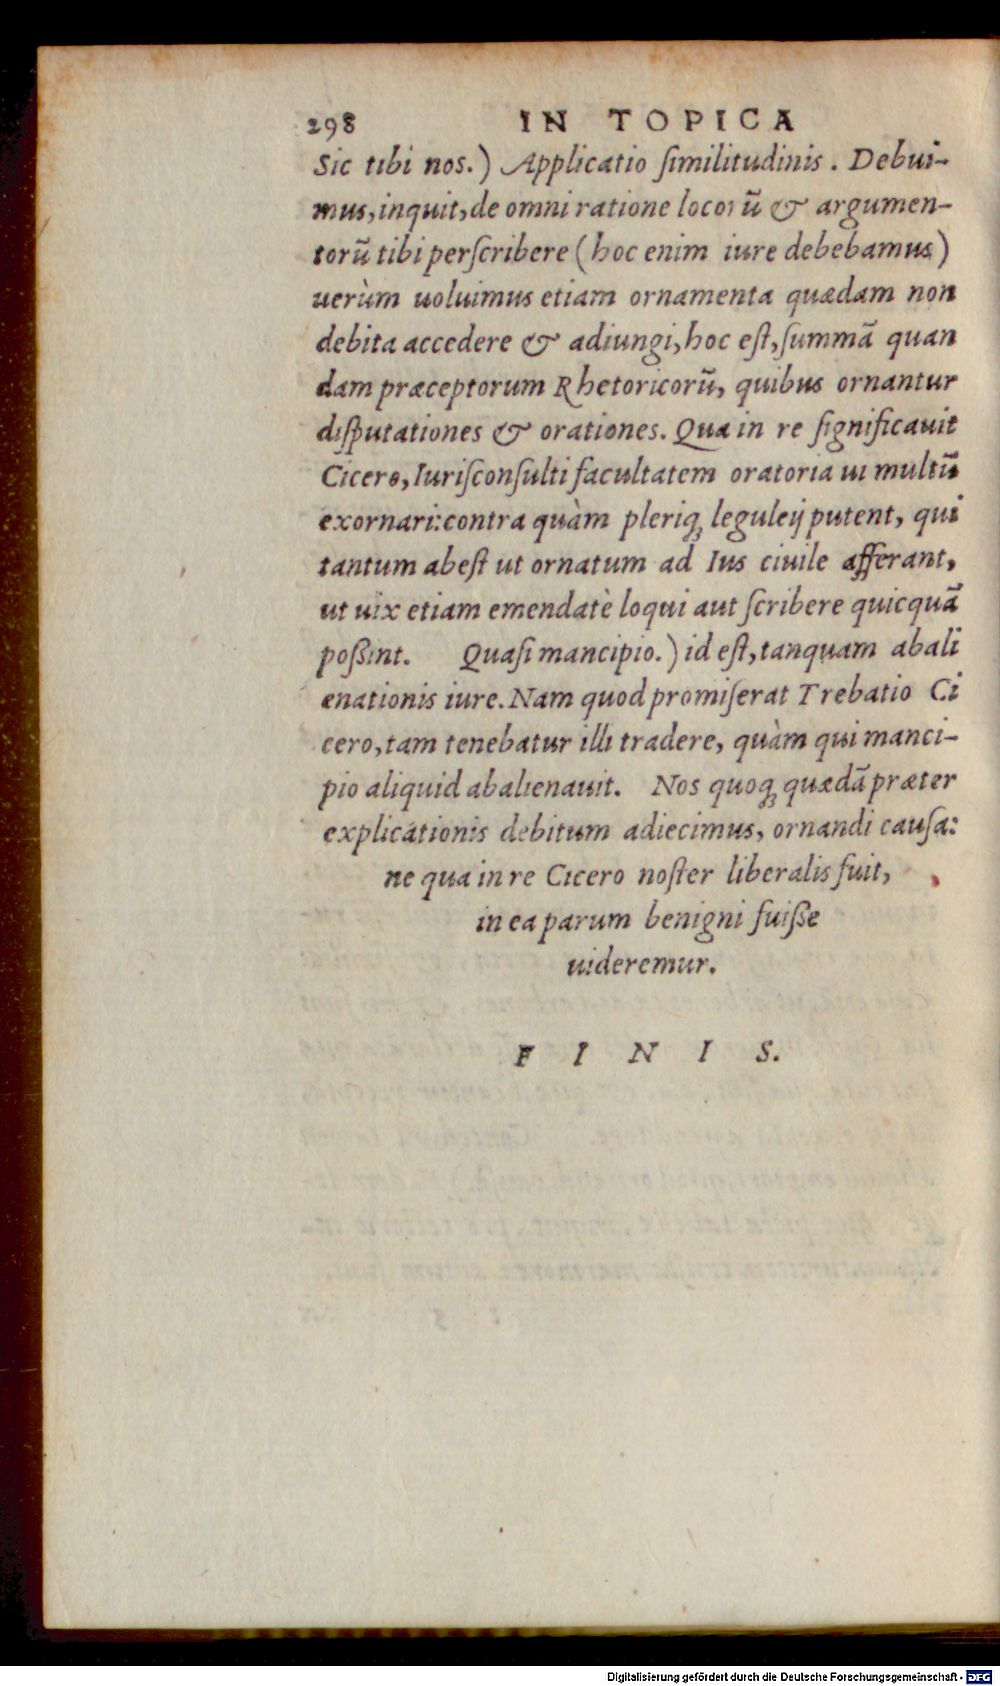 298 IN TOPICA
Sic tibi nos.) Applicatio ſimilitudinis. Debui-
mus, inquit, de omni ratione locorū & argumen-
torū tibi perſcribere (hoc enim iure debebamus)
uerùm uoluimus etiam ornamenta quædam non
debita accedere & adiungi, hoc eſt, ſummā quan
dam præceptorum Rhetoricorū, quibus ornantur
diſputationes & orationes. Qua in re ſignificauit
Cicero, Iuriſconſulti facultatem oratoria ui multū
exornari: contra quàm pleriq; leguleij putent, qui
tantum abeſt ut ornatum ad Ius ciuile afferant,
ut uix etiam emendatè loqui aut ſcribere quicquā
poßint. Quaſi mancipio.) id eſt, tanquam abali
enationis iure. Nam quod promiſerat Trebatio Ci
cero, tam tenebatur illi tradere, quàm qui manci-
pio aliquid abalienauit. Nos quoq; quædā præter
explicationis debitum adiecimus, ornandi cauſa:
ne qua in re Cicero noſter liberalis fuit,
in ea parum benigni fuiſſe
uideremur.
F I N I S.
Digitalisierung gefördert durch die Deutsche Forschungsgemeinschaft - DFG